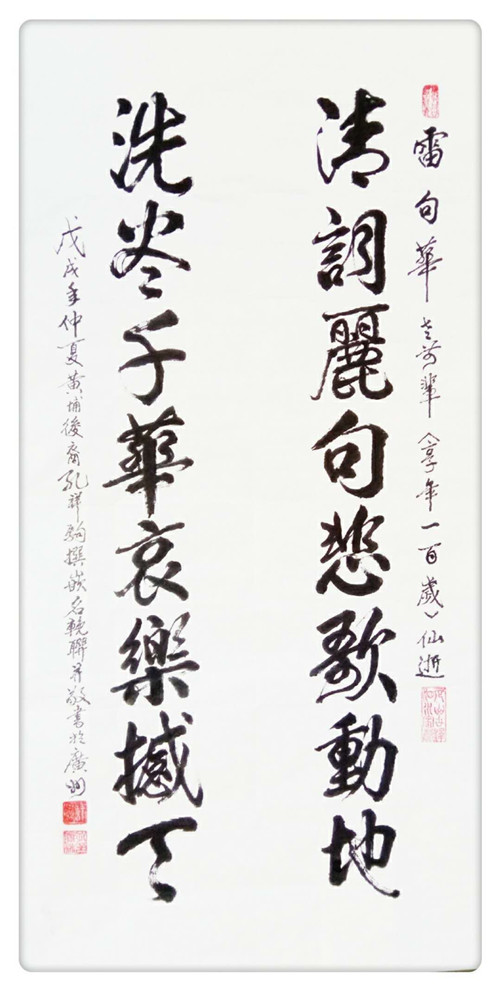 雷句華老前輩(享年一百歲)仙逝
清詞麗句悲歌動地
洗尽千華哀樂撼天
戊戌年仲夏黄埔後裔孔祥駒撰嵌名輓聯并敬書於廣州